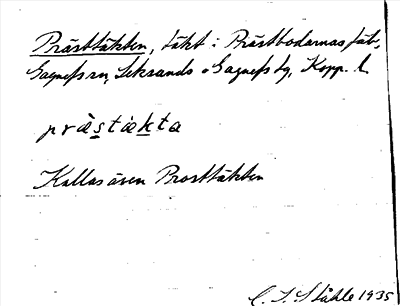 Prästtäkten, täkt i Prästbodarnas fäb.,
Gagnefs sn, Leksands o Gagnefs tg, Kopp. l.
prästäkta
Kallas även Prosttäkten
C. I. Ståhle 1935